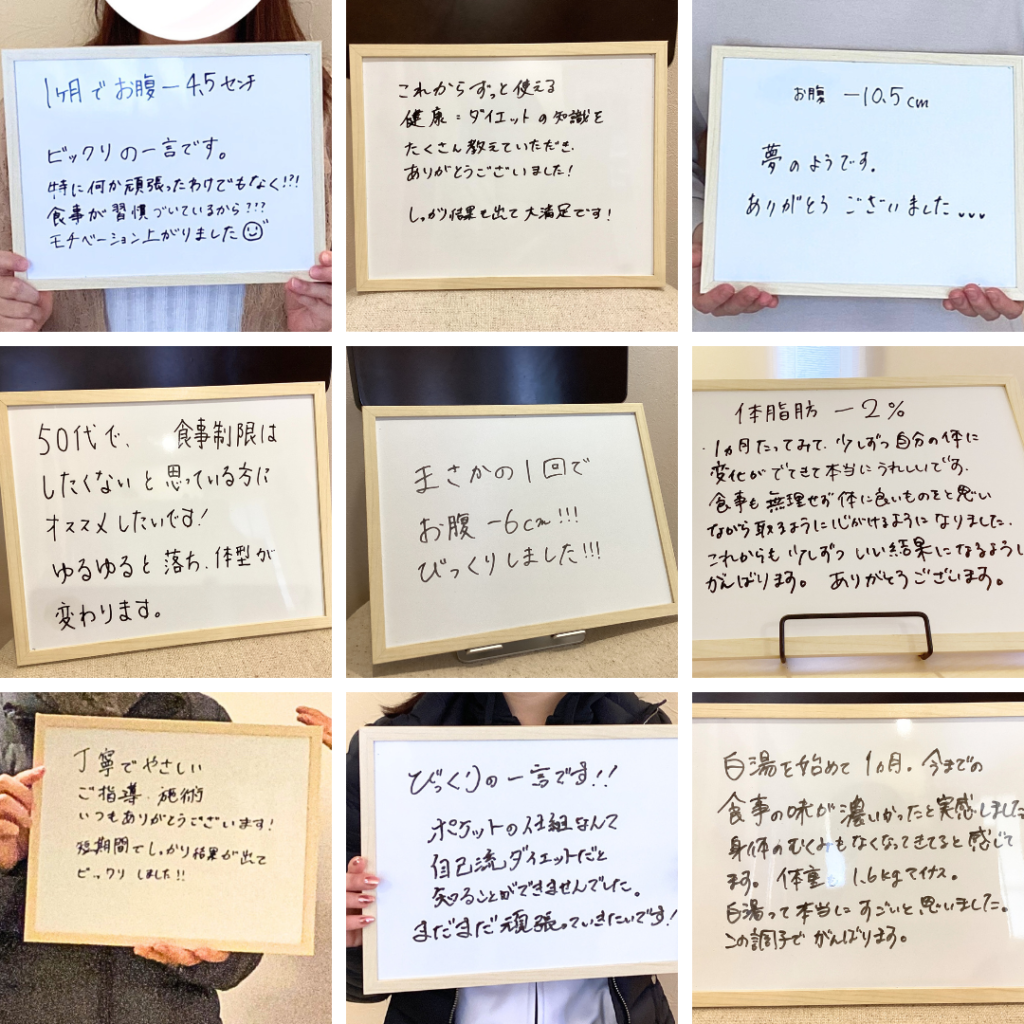 1ヶ月でお腹-4.5センチ
ビックリの一言です。
特に何か頑張ったわけでもなく!?!
食事が習慣づいているから???
モチベーション上がりました
これからずっと使える
健康:ダイエットの知識を
たくさん教えていただき、
ありがとうございました!
しっかり結果も出て大満足です!
お腹 -10.5cm
夢のようです。
ありがとう ございました...
50代で、 食事制限は
したくないと思っている方に
オススメしたいです!
ゆるゆると落ち、体型が
変わります。
まさかの1回で
お腹-6cm!!!
びっくりしました!!!
体脂肪 -2%
・1ヵ月たってみて、少しずつ自分の体に
変化がでてきて本当にうれしいです。
食事も無理せず体に良いものをと思い
ながら取るように心がけるようになりました。
これからも少しずついい結果になるようし
がんばります。 ありがとうございます。
丁寧でやさしい
ご指導、施術
いつもありがとうございます!
短期間でしっかり結果が出て
ビックリしました!!
びっくりの一言です!!
ポケットの仕組なんて
自己流ダイエットだと
知ることができませんでした。
まだまだ頑張っていきたいです!
白湯を始めて1ヵ月。今までの
食事の味が濃いかったと実感しました
身体のむくみもなくなってきてると感じて
ます。体重も1.6kgマイナス。
白湯って本当にすごいと思いました。
この調子でがんばります。